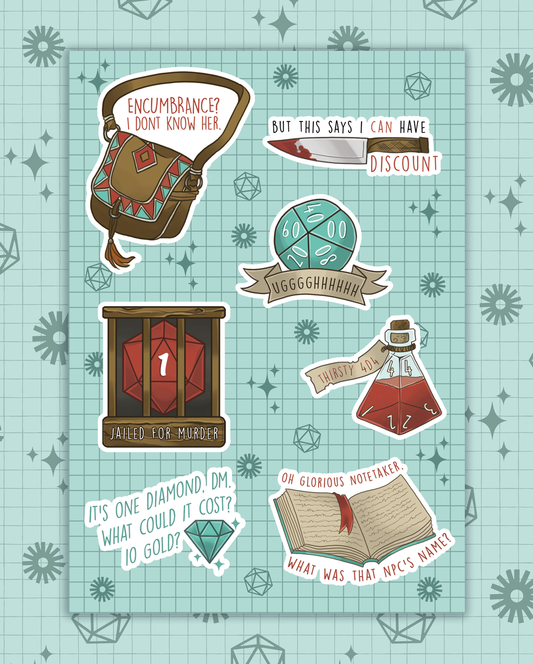 ENCUMBRANCE?
I DONT KNOW HER.
BUT THIS SAYS I CAN HAVE
DISCOUNT
40
60 00
20 80
UGGGGHHHHHH
1
JAILED FOR MURDER
THIRSTY 4D4
4 4
1 2 2 3
IT'S ONE DIAMOND, DM.
WHAT COULD IT COST?
10 GOLD?
OH GLORIOUS NOTETAKER,
WHAT WAS THAT NPC'S NAME?